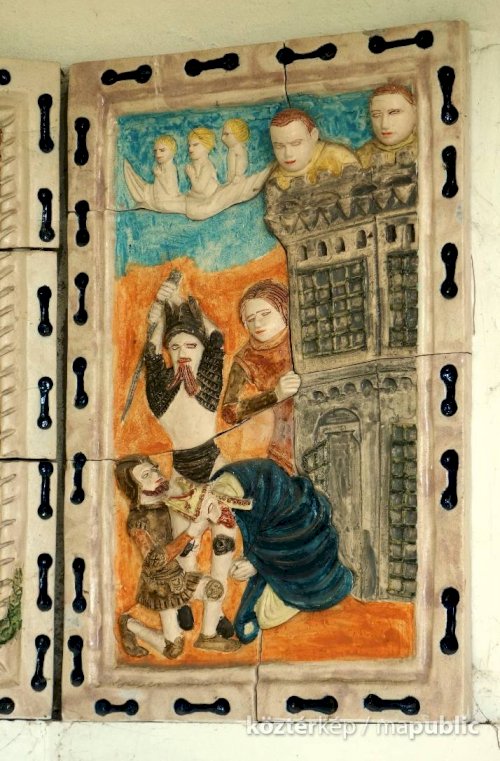 köztérkép / mapublic